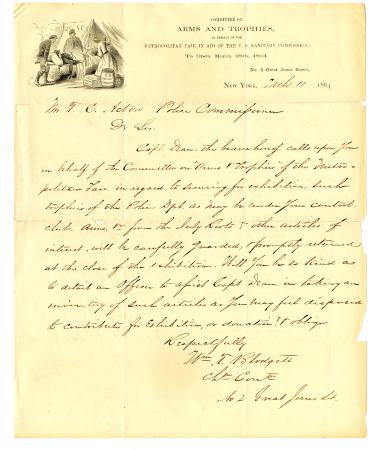 COMMITTEE ON
ARMS AND TROPHIES,
IN BEHALF OF THE
METROPOLITAN FAIR IN AID OF THE U. S. SANITARY COMMISSION,
To Open March 28th, 1864.
No. 2 Great Jones Street,
NEW YORK, Feb 11 1864
Mr T. C. Acton Police Commissioner
Dr Sir.
Capt Dean, the bearer hereof calls upon you
in behalf of the Committee on "Arms & Trophies" of the Metro-
politan Fair in regard to securing for exhibition, such
trophies of the Police Dpt. as may be under your control.
Clubs, Arms, &c from the July Riots & other articles of
interest, will be carefully guarded, & promptly returned
at the close of the exhibition. Will you be so kind as
to detail an Officer to assist Capt Dean in taking an
inventory of such articles as you may feel disposed
to contribute for Exhibition, or donation? & oblige
Respectfully
Wm. T. Blodgett
Chn Comte
No 2 Great Jones St.